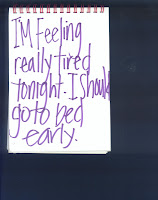 I'M feeling
really tired
tonight. I should
go to bed
early.